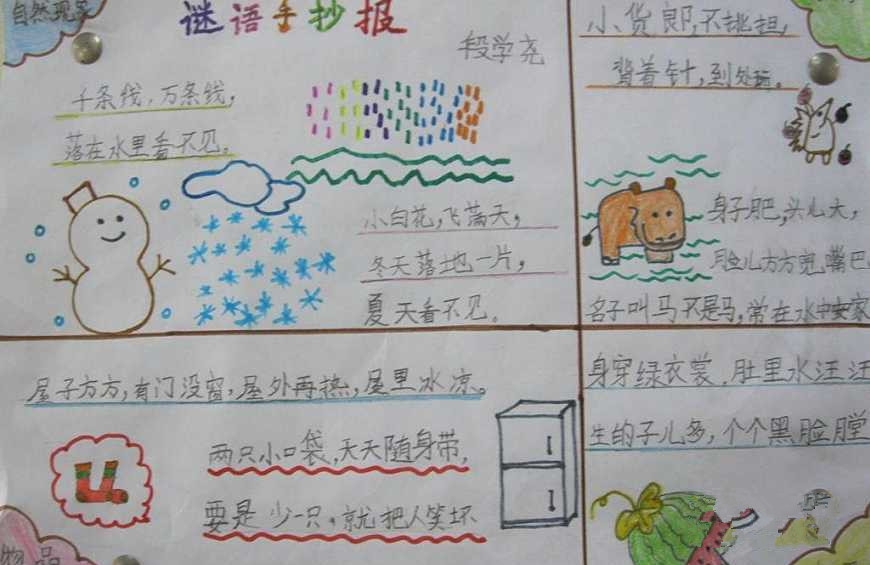 自然现象
谜语手抄报
段学尧
千条线，万条线，
落在水里看不见。
小白花，飞满天，
冬天落地一片，
夏天看不见。
小货郎，不挑担，
背着针，到处
身子肥，头儿大，
脸儿方方宽嘴巴
名子叫马不是马，常在水中安家
屋子方方，有门没窗，屋外再热，屋里冰凉。
两只小口袋，天天随身带，
要是少一只，就把人笑坏
身穿绿衣裳，肚里水汪汪
生的子儿多，个个黑脸膛
物品